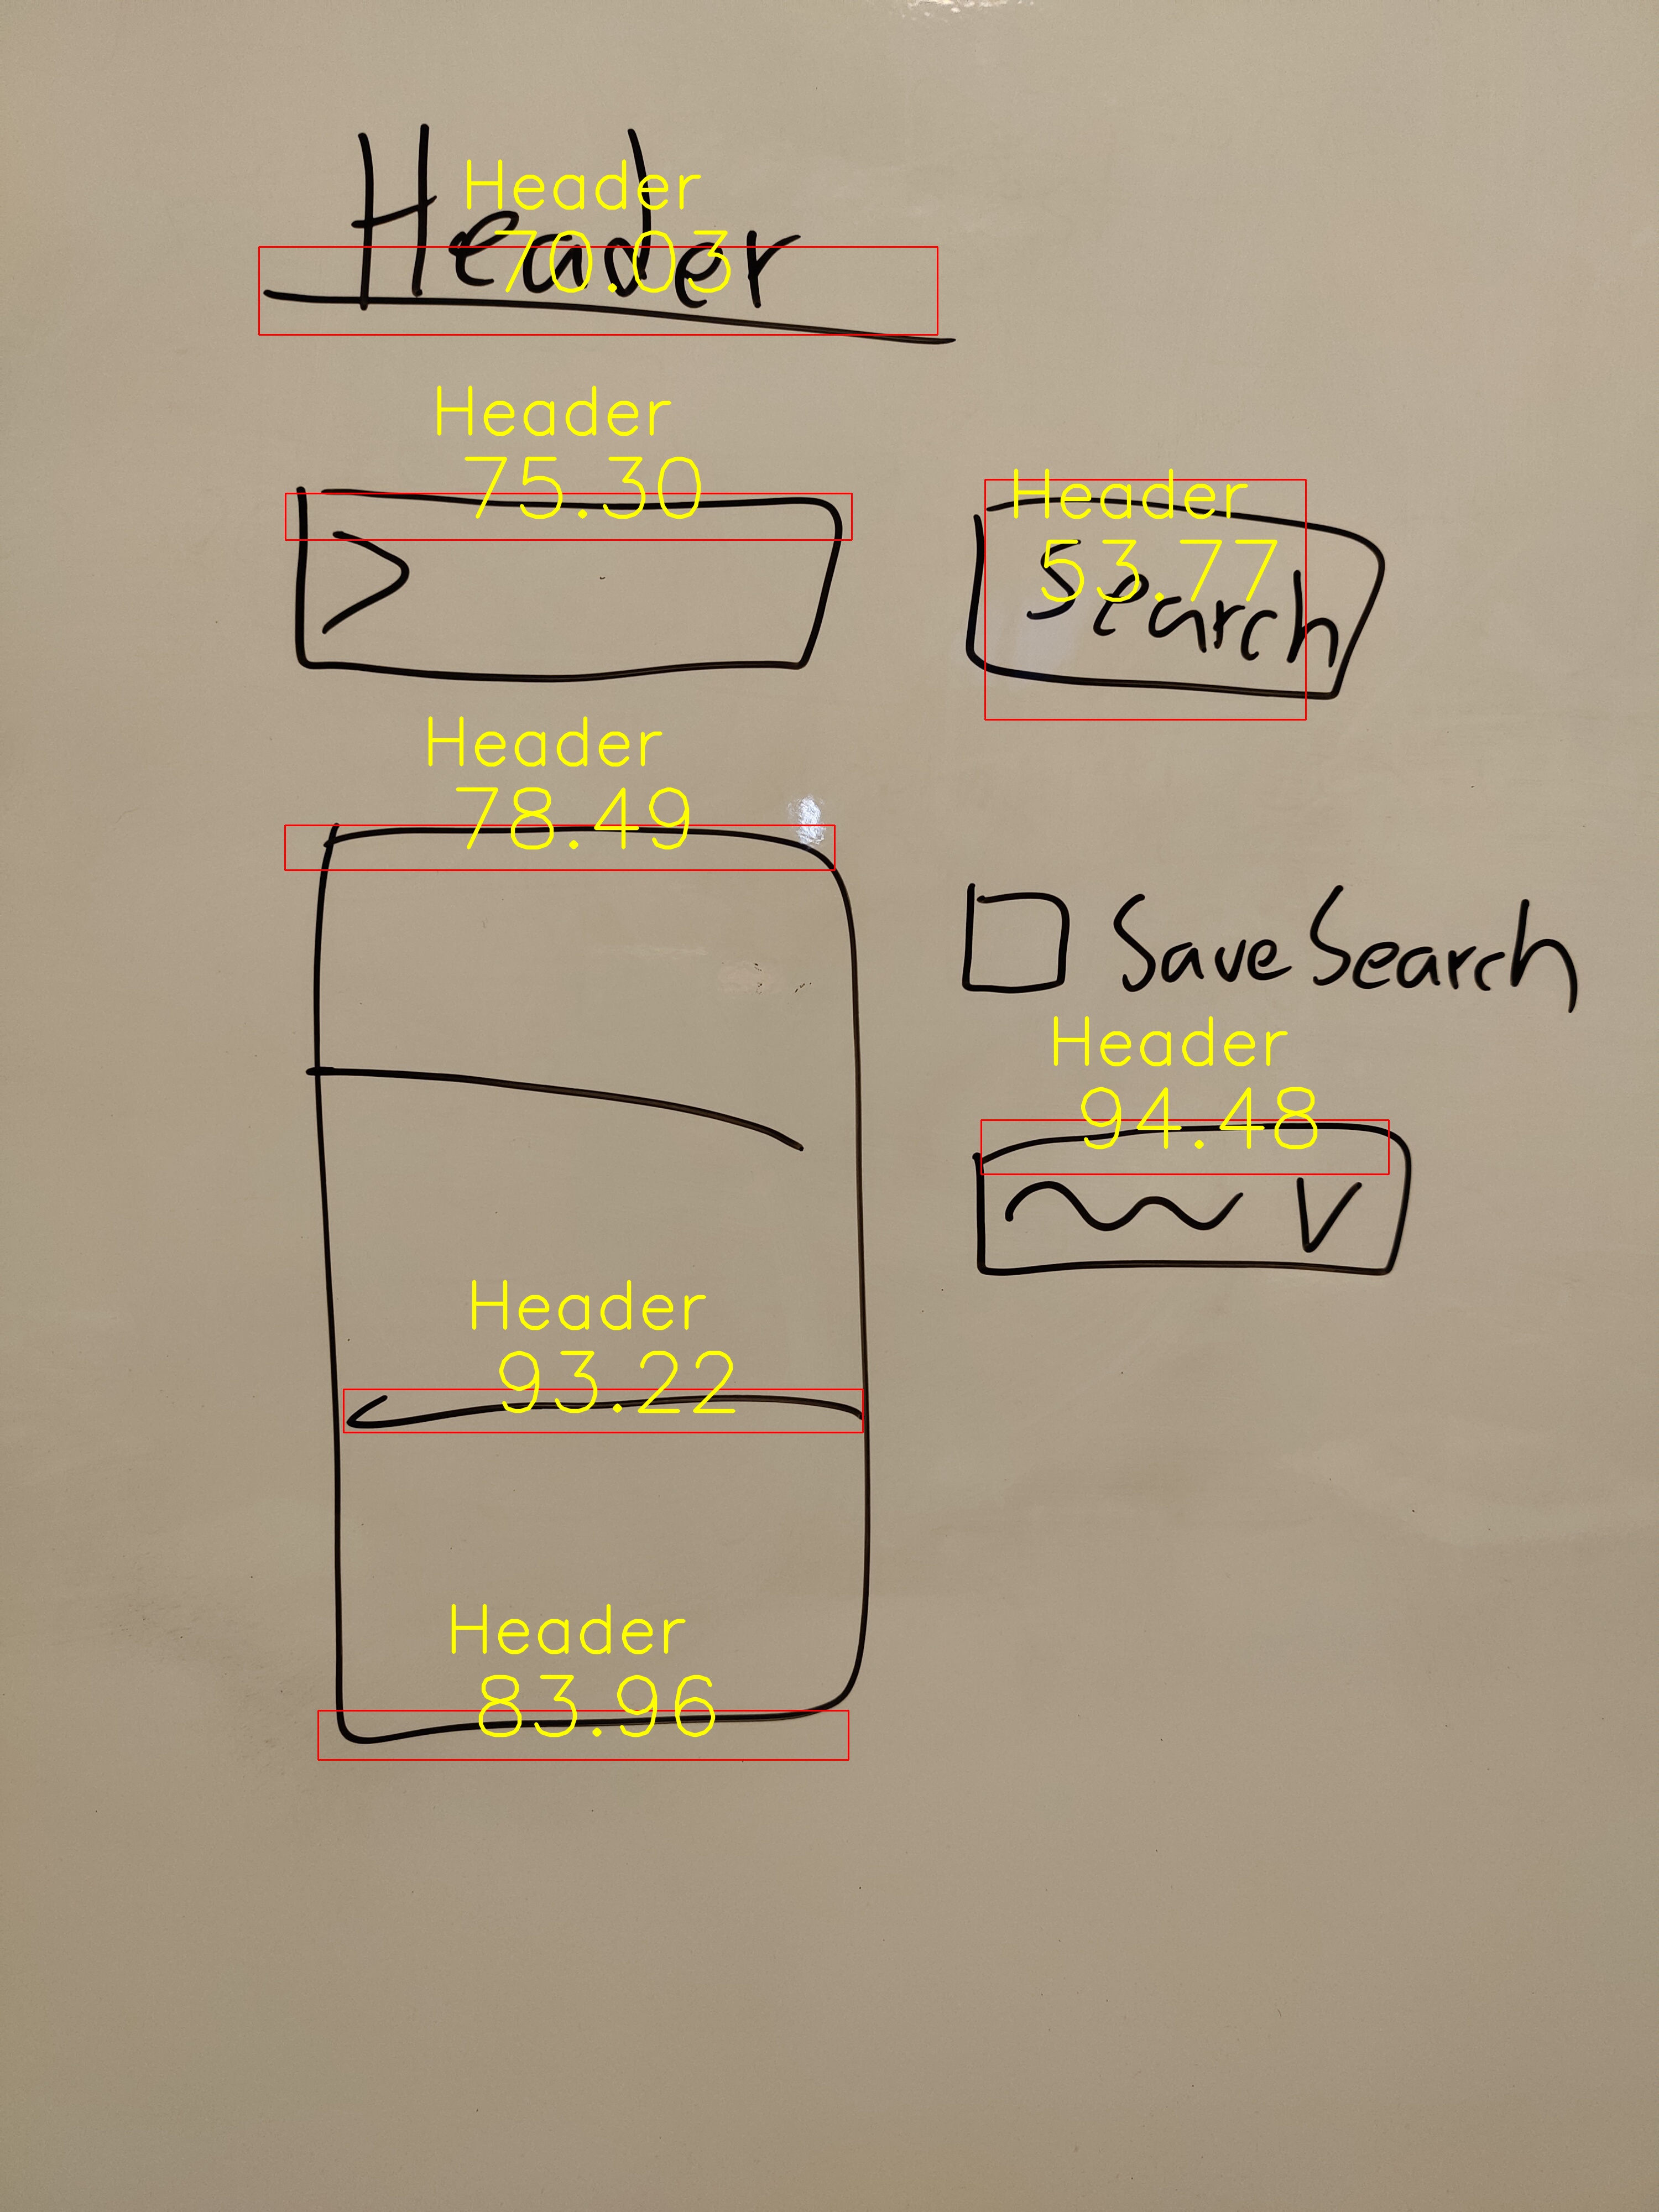 Header
Header
70.03
Header
75.30
Header
53.77
Search
Header
78.49
Save Search
Header
94.48
V
Header
93.22
Header
83.96